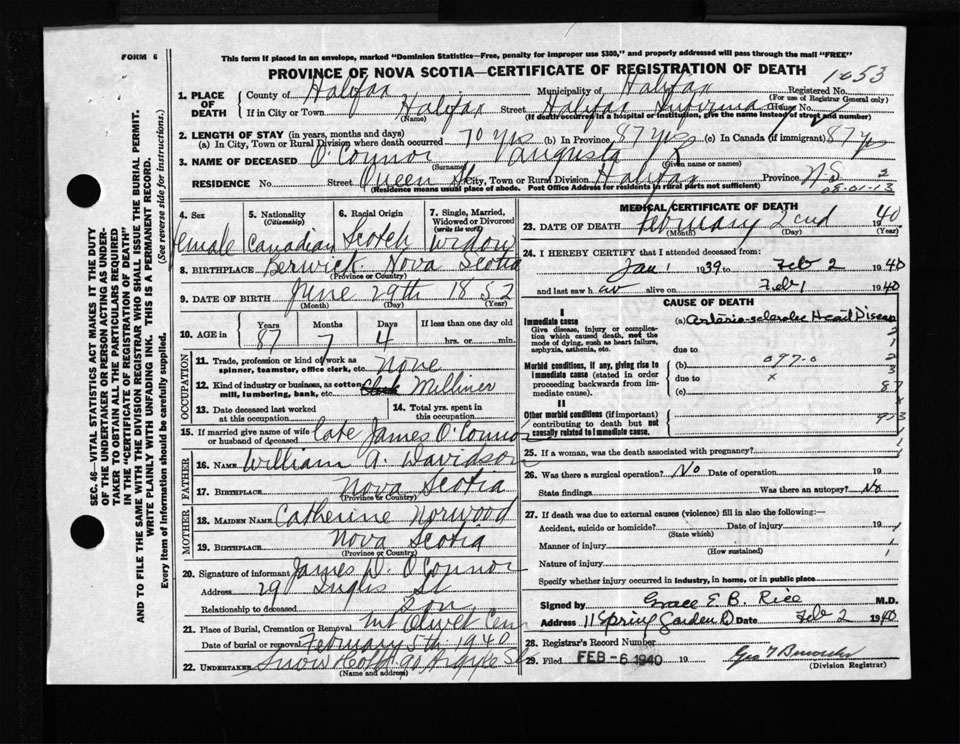 FORM 6
This form if placed in an envelope, marked "Dominion Statistics—Free, penalty for improper use $300," and properly addressed will pass through the mail "FREE"
PROVINCE OF NOVA SCOTIA—CERTIFICATE OF REGISTRATION OF DEATH
1053
1. PLACE OF DEATH
County of Halifax Municipality of Halifax Registered No.
(For use of Registrar General only)
If in City or Town Halifax Street Halifax Infirmary House No.
(Name) (If death occurred in a hospital or institution, give the name instead of street and number)
2. LENGTH OF STAY (in years, months and days)
(a) In City, Town or Rural Division where death occurred 70 yrs (b) In Province 87 yrs (c) In Canada (if immigrant) 87 yrs
3. NAME OF DECEASED O'Connor Augusta
(Surname) (Given name or names)
RESIDENCE No. Street Queen St City, Town or Rural Division Halifax Province N.S. 2
(Residence means usual place of abode. Post Office Address for residents in rural parts not sufficient)
08-01-13
4. Sex female
5. Nationality (Citizenship) Canadian
6. Racial Origin Scotch
7. Single, Married, Widowed or Divorced (write the word) Widow
8. BIRTHPLACE Berwick Nova Scotia
(Province or Country)
9. DATE OF BIRTH June 29th 1852
(Month) (Day) (Year)
10. AGE in Years Months Days If less than one day old
87 7 4 hrs. or min.
OCCUPATION
11. Trade, profession or kind of work as spinner, teamster, office clerk, etc. None
12. Kind of industry or business, as cotton mill, lumbering, bank, etc. Milliner
13. Date deceased last worked at this occupation
14. Total yrs. spent in this occupation
15. If married give name of wife or husband of deceased Late James O'Connor
FATHER
16. NAME William A. Davidson
17. BIRTHPLACE Nova Scotia
(Province or Country)
MOTHER
18. MAIDEN NAME Catherine Norwood
19. BIRTHPLACE Nova Scotia
(Province or Country)
20. Signature of informant James D. O'Connor
Address 29 Inglis St
Relationship to deceased Son
21. Place of Burial, Cremation or Removal Mt Olivet Cem
Date of burial or removal February 5th 1940
22. UNDERTAKER Snow &Co Ltd 90 Argyle St
(Name and address)
MEDICAL CERTIFICATE OF DEATH
23. DATE OF DEATH February 2cnd 1940
(Month) (Day) (Year)
24. I HEREBY CERTIFY that I attended deceased from:
Jan 1 1939 to Feb 2 1940
and last saw her alive on Feb 1 1940
CAUSE OF DEATH
I
Immediate cause (a) Arterio-sclerotic Heart Disease
Give disease, injury or complication which caused death, not the mode of dying, such as heart failure, asphyxia, asthenia, etc.
due to
Morbid conditions, if any, giving rise to immediate cause (stated in order proceeding backwards from immediate cause).
(b) 097-0
due to x
(c)
87
II
Other morbid conditions (if important) contributing to death but not causally related to immediate cause.
973
25. If a woman, was the death associated with pregnancy?
26. Was there a surgical operation? No Date of operation 19
State findings Was there an autopsy? No
27. If death was due to external causes (violence) fill in also the following:—
Accident, suicide or homicide? Date of injury 19
(State which)
Manner of injury
(How sustained)
Nature of injury
Specify whether injury occurred in industry, in home, or in public place
Signed by Grace E. B. Rice M.D.
Address 11 Spring Garden Rd Date Feb 2 1940
28. Registrar's Record Number
29. Filed FEB -6 1940 19
(Division Registrar)
SEC. 46—VITAL STATISTICS ACT MAKES IT THE DUTY OF THE UNDERTAKER OR PERSON ACTING AS UNDERTAKER TO OBTAIN ALL THE PARTICULARS REQUIRED IN THE "CERTIFICATE OF REGISTRATION OF DEATH" AND TO FILE THE SAME WITH THE DIVISION REGISTRAR WHO SHALL ISSUE THE BURIAL PERMIT.
WRITE PLAINLY WITH UNFADING INK. THIS IS A PERMANENT RECORD.
Every item of information should be carefully supplied. (See reverse side for instructions.)